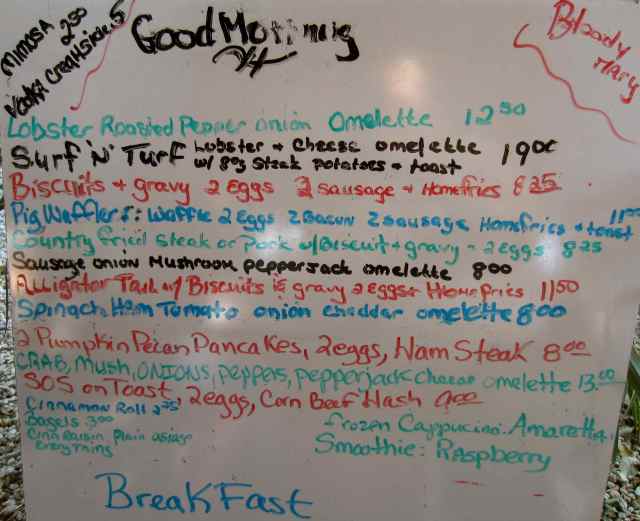 Mimosa 2.50
Good Morning
Bloody Mary
Lobster Roasted Pepper onion Omelette 12.50
Surf 'N' Turf Lobster + Cheese omelette 19.00
w/ 8oz Steak potatoes + toast
Biscuits + gravy 2 Eggs 2 sausage + Homefries 8.25
Pig Wafflers: Waffle 2 Eggs 2 Bacon 2 sausage Homefries + toast
Country fried steak or Pork w/Biscuit + gravy - 2 Eggs 8.25
Sausage onion Mushroom pepperjack omelette 8.00
Alligator Tail w/ Biscuits & gravy 2 eggs + Homefries 11.50
Spinach Ham Tomato onion cheddar omelette 8.00
2 Pumpkin Pecan Pancakes, 2eggs, Ham Steak 8.00
CRAB, Mush, ONIONS, peppers, pepperjack cheese omelette 13.00
SOS on Toast 2eggs, Corn Beef Hash 9.00
Cinnamon Roll
Bagels 3.00
Cinn Raisin plain asiago
Everything
Frozen Cappucino: Amaretto
Smoothie: Raspberry
BreakFast